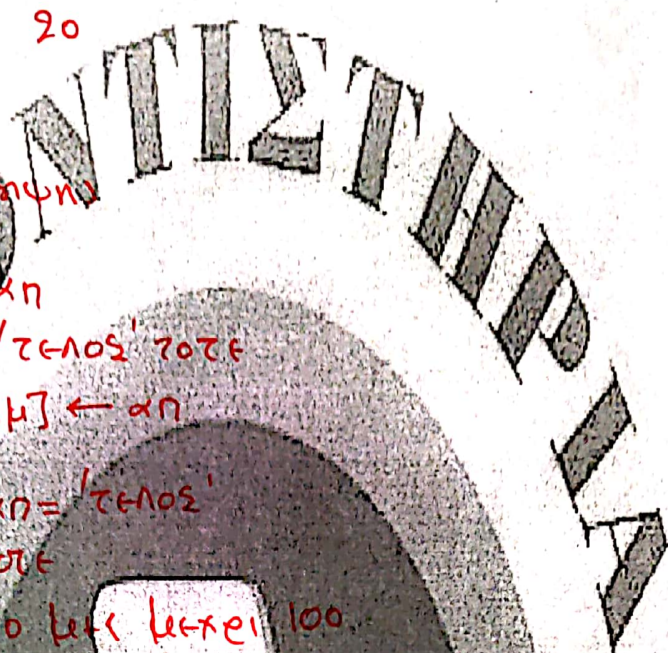 20
ΝΤΙΣΤΗΡΙΑ
απ
'τελος' τοτε
μ] ← απ
απ = 'τελος'
μεχρι 100